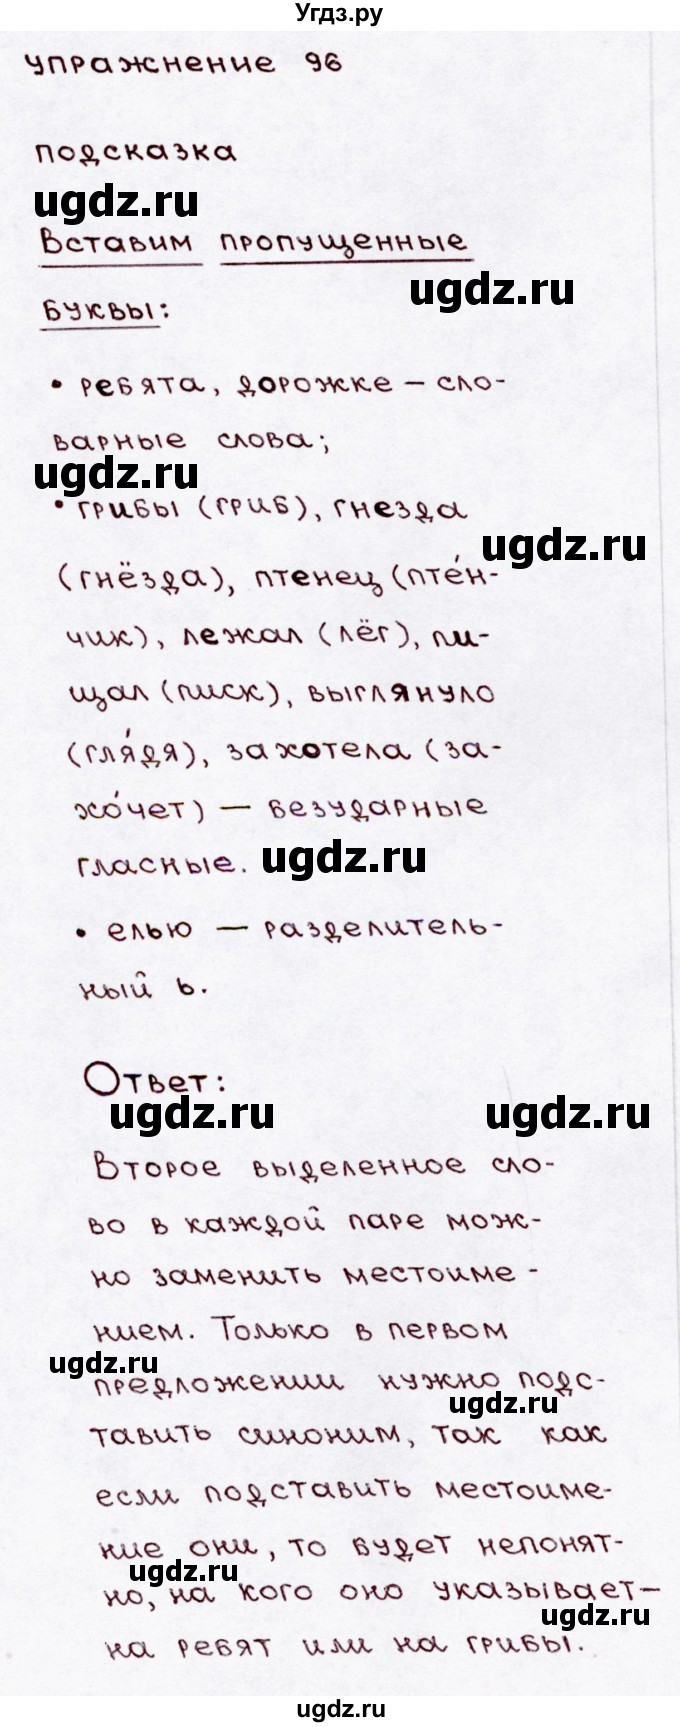 Угдз.ру
упражнение 96
подсказка
ugdz.ru
Вставим пропущенные
ugdz.ru
буквы:
• ребята, дорожке – сло-
варные слова;
ugdz.ru
• грибы (гриб), гнезда
ugdz.ru
(гнёзда), птенец (пте́н-
чик), лежал (лёг), пи-
щал (писк), выглянуло
(гля́дя), захотела (за-
хо́чет) – безударные
гласные. ugdz.ru
• елью – разделитель-
ный ь.
Ответ:
ugdz.ru ugdz.ru
Второе выделенное сло-
во в каждой паре мож-
но заменить местоиме-
нием. Только в первом
ugdz.ru
предложении нужно подс-
ugdz.ru
тавить синоним, так как
если подставить местоиме-
ние они, то будет непонят-
ugdz.ru
но, на кого оно указывает–
ugdz.ru
на ребят или на грибы.
ugdz.ru